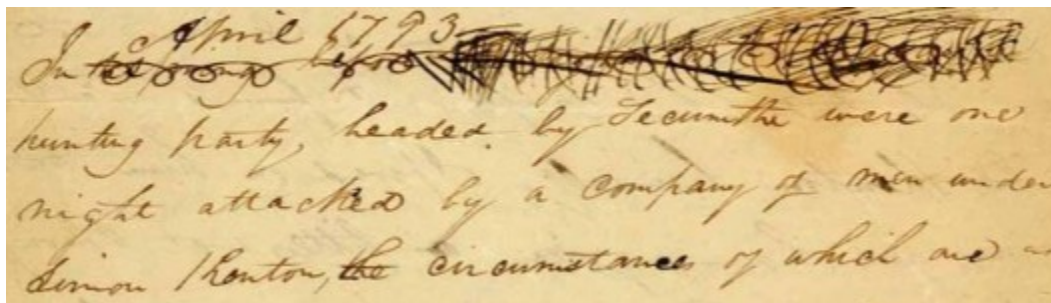 April 1793
In the spring before
hunting party, headed by Tecumthe were one
night attacked by a company of men under
Simon Kenton, the circumstances of which are